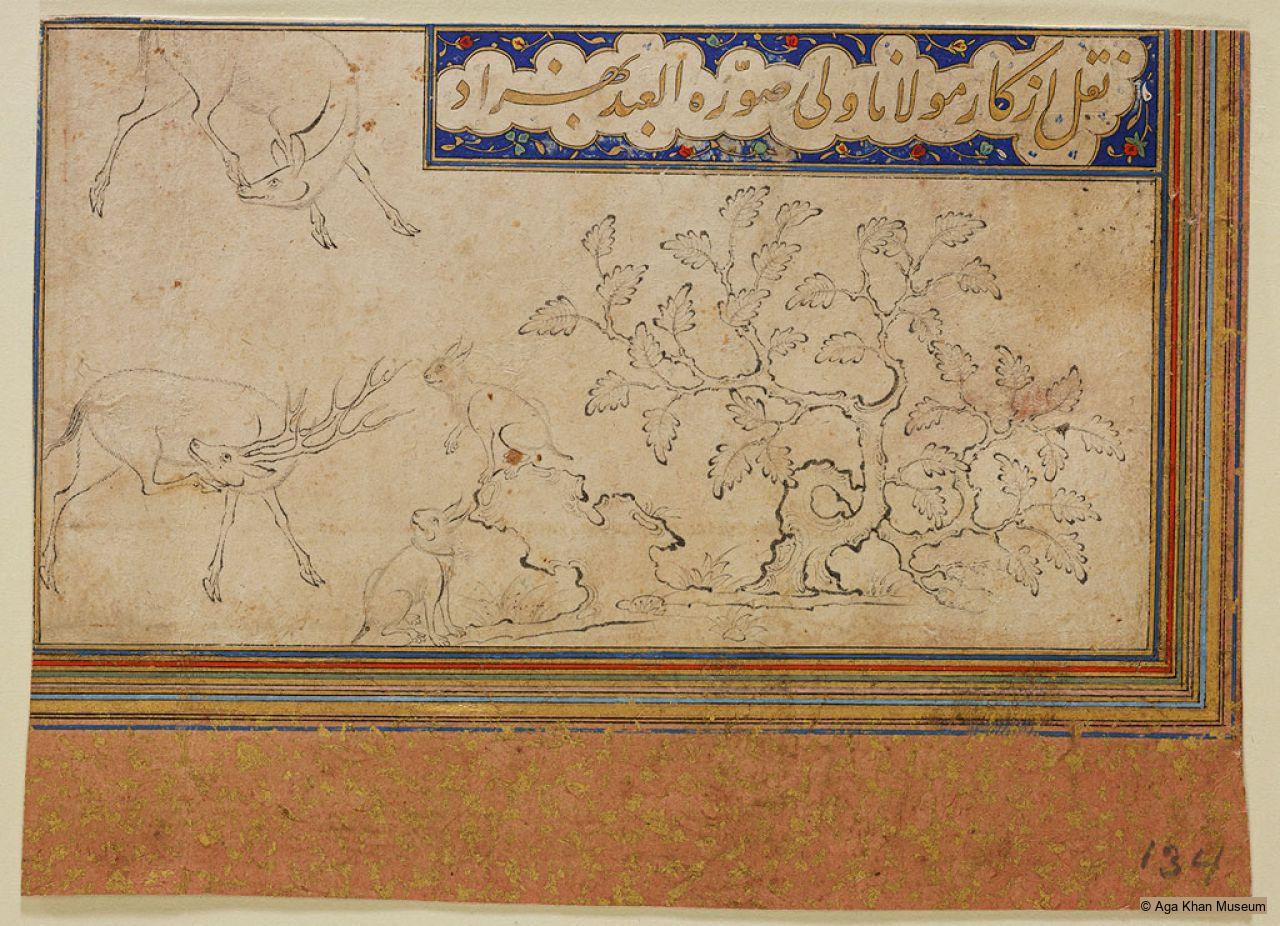 نقل از کار مولانا ولی صوّره العبد بهزاد
134
© Aga Khan Museum